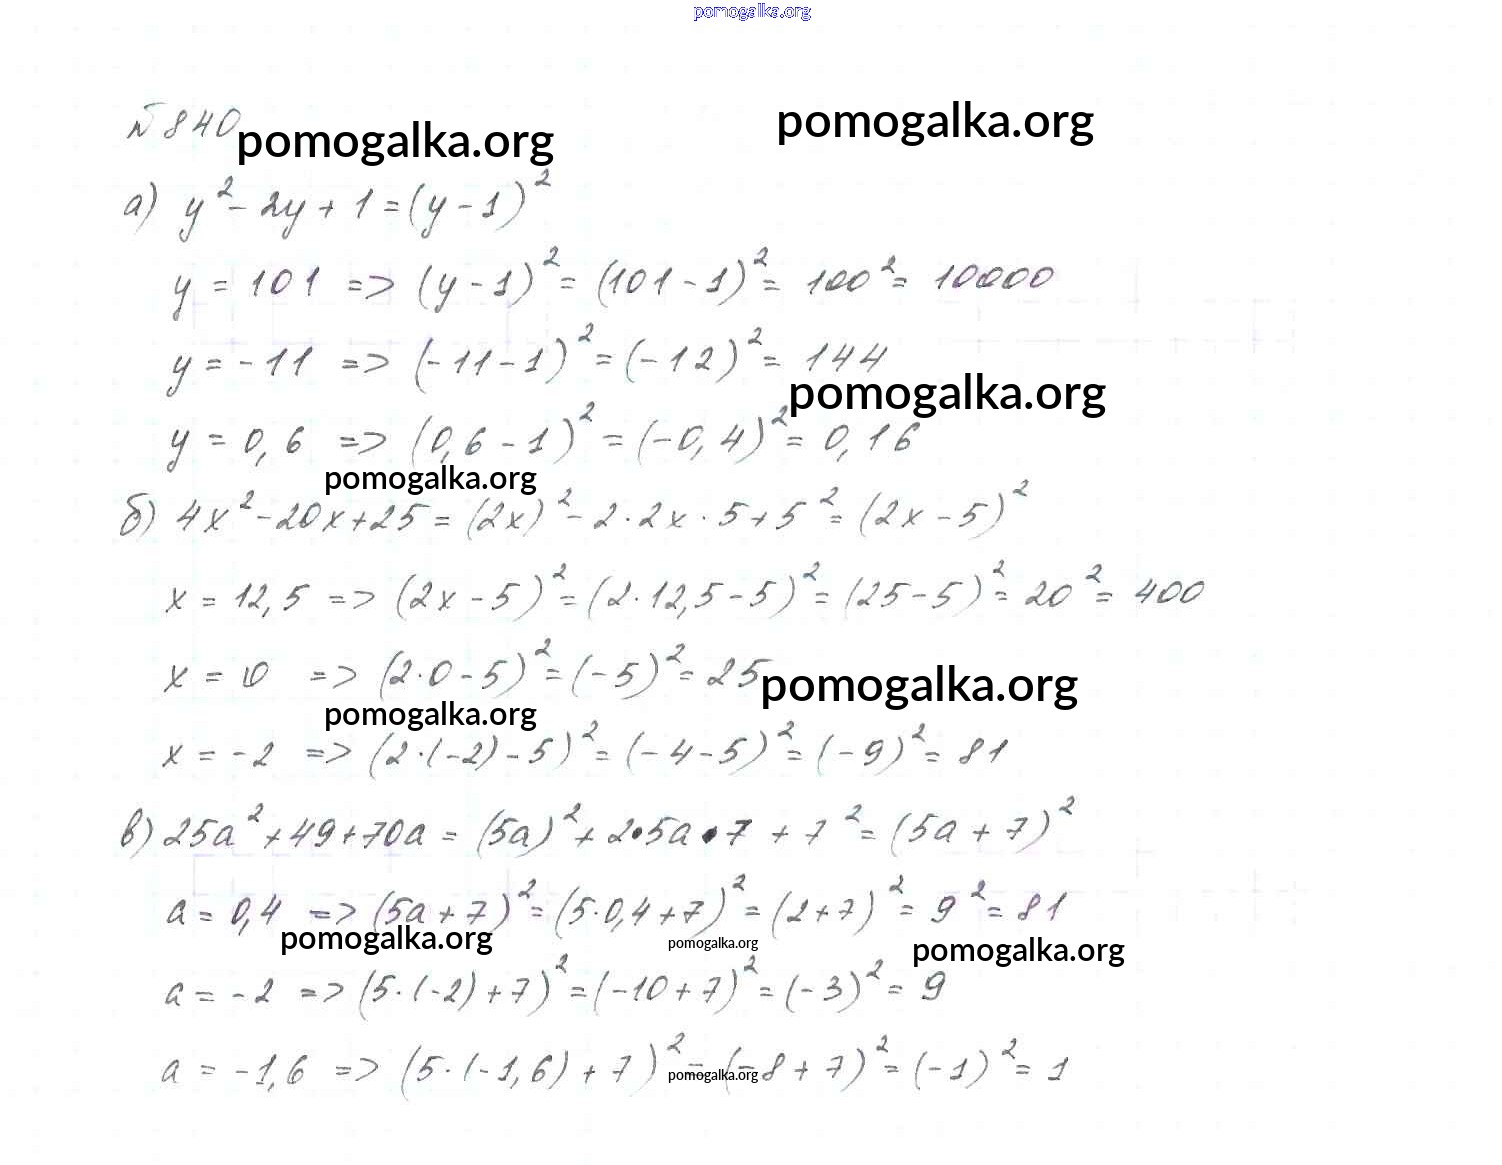 pomogalka.org
№840
pomogalka.org
pomogalka.org
а) y² - 2y + 1 = (y - 1)²
y = 101 => (y - 1)² = (101 - 1)² = 100² = 10000
y = -11 => (-11 - 1)² = (-12)² = 144
pomogalka.org
y = 0,6 => (0,6 - 1)² = (-0,4)² = 0,16
pomogalka.org
б) 4x² - 20x + 25 = (2x)² - 2·2x·5 + 5² = (2x - 5)²
x = 12,5 => (2x - 5)² = (2·12,5 - 5)² = (25 - 5)² = 20² = 400
x = 0 => (2·0 - 5)² = (-5)² = 25
pomogalka.org
pomogalka.org
x = -2 => (2·(-2) - 5)² = (-4 - 5)² = (-9)² = 81
в) 25a² + 49 + 70a = (5a)² + 2•5a•7 + 7² = (5a + 7)²
a = 0,4 => (5a + 7)² = (5·0,4 + 7)² = (2 + 7)² = 9² = 81
pomogalka.org
pomogalka.org
pomogalka.org
a = -2 => (5·(-2) + 7)² = (-10 + 7)² = (-3)² = 9
a = -1,6 => (5·(-1,6) + 7)² = (-8 + 7)² = (-1)² = 1
pomogalka.org